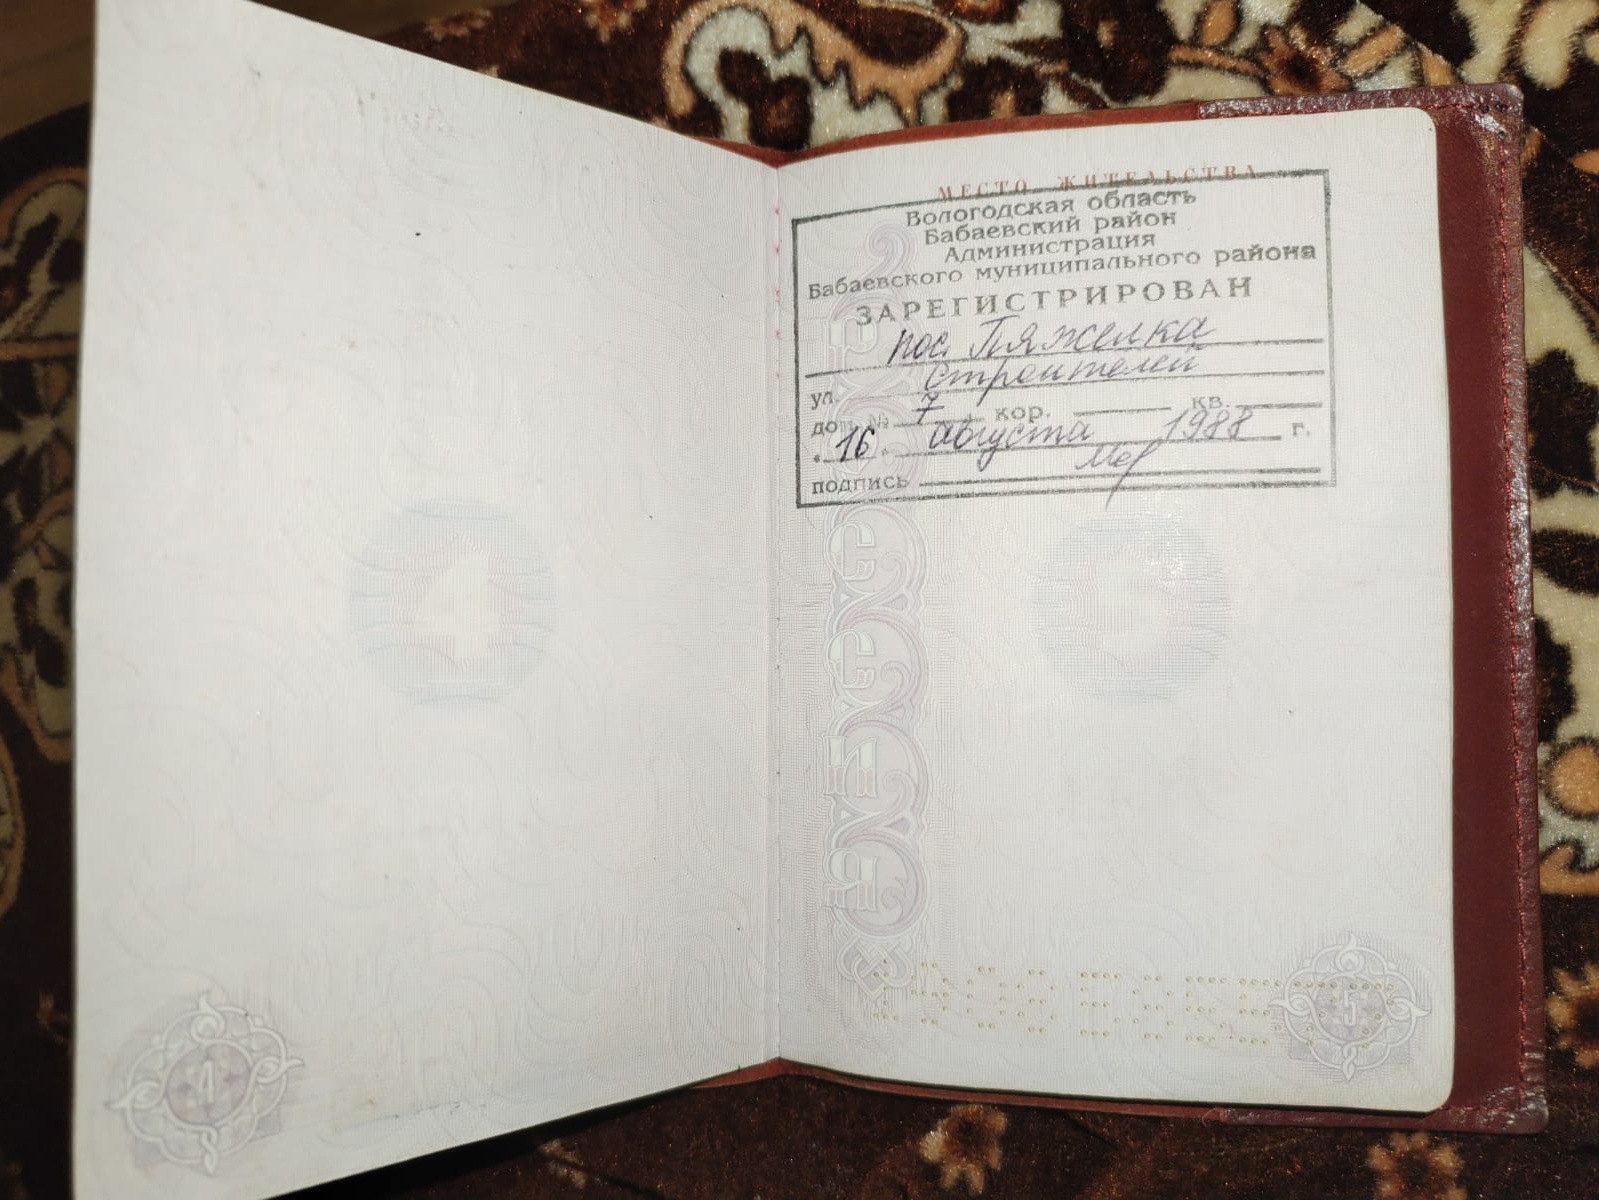 МЕСТО ЖИТЕЛЬСТВА
Вологодская область
Бабаевский район
Администрация
Бабаевского муниципального района
ЗАРЕГИСТРИРОВАН
пос. Пяжелка
ул. Строителей
дом № 7 кор. кв.
"16" августа 1988 г.
подпись
РОССИЯ
4
5